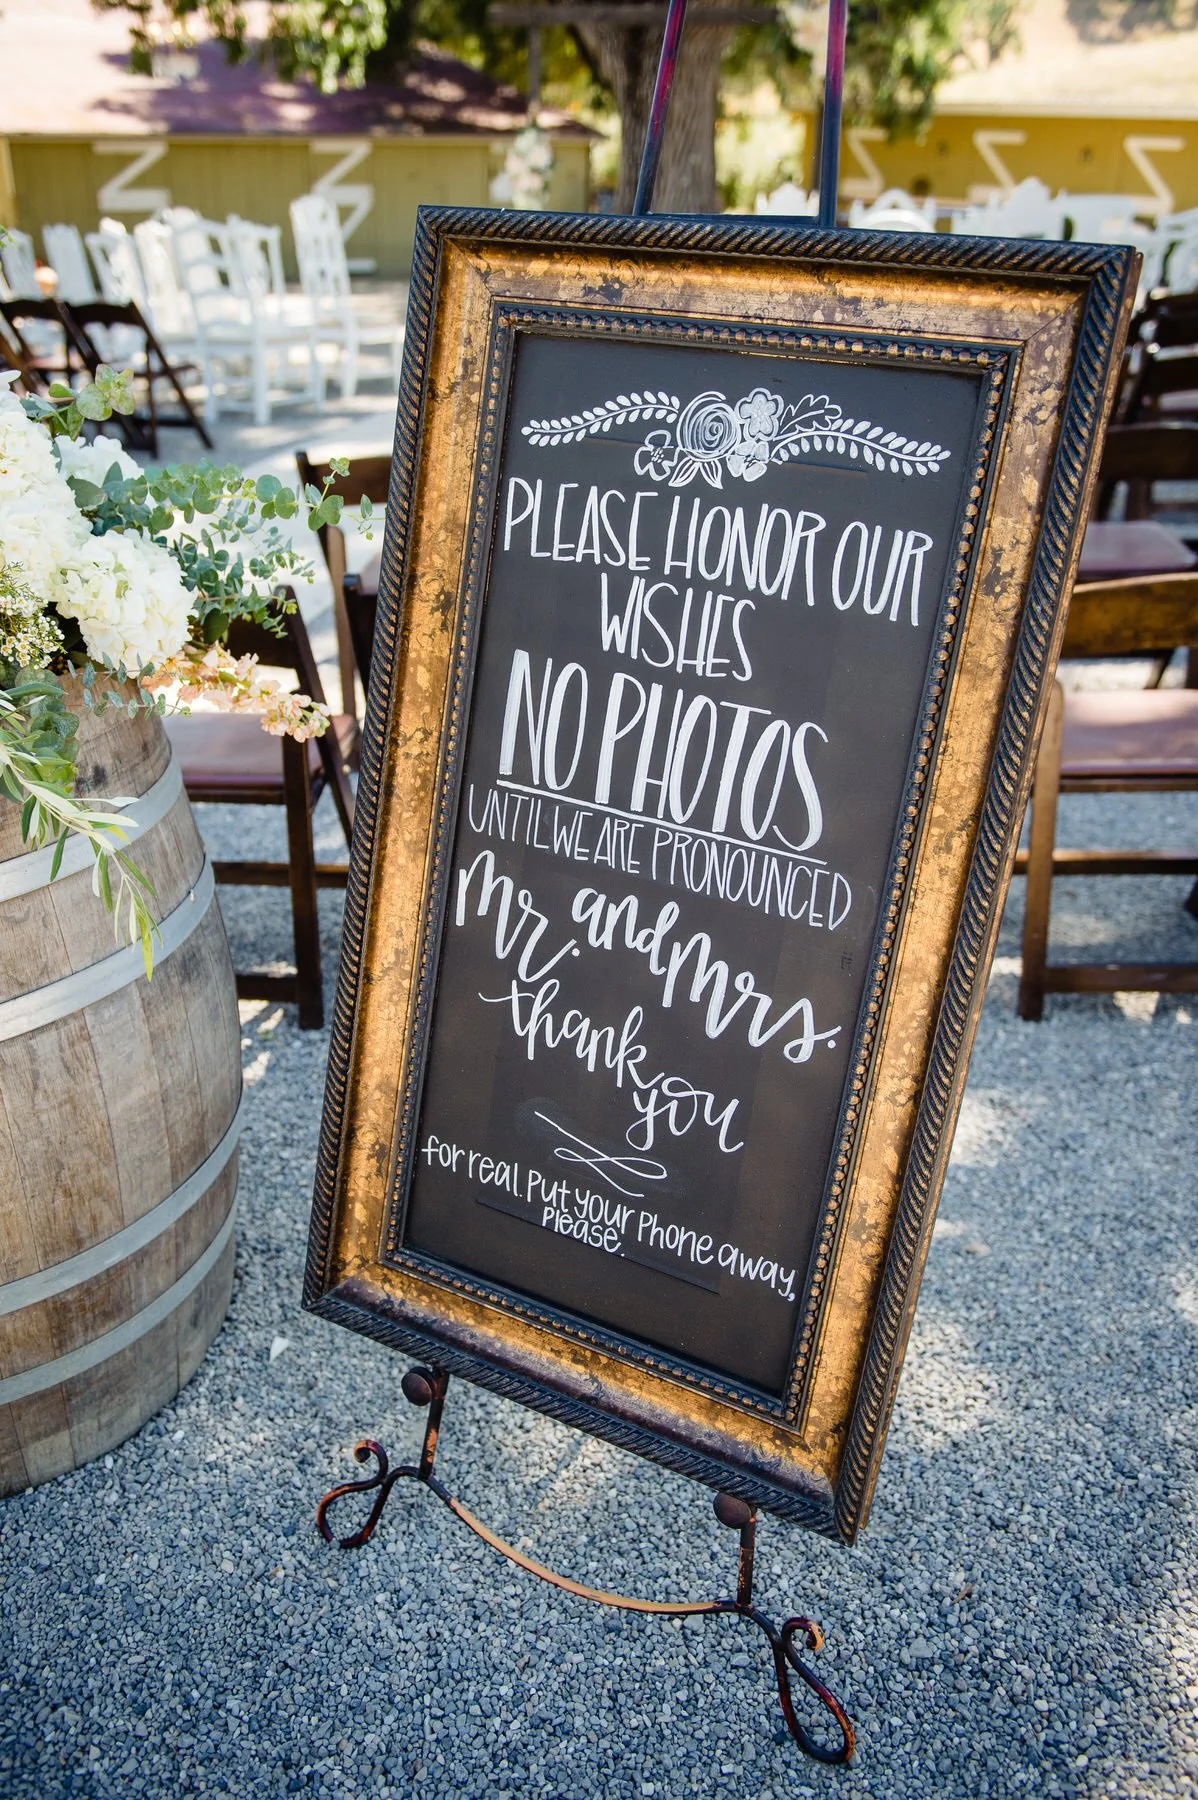 PLEASE HONOR OUR
WISHES
NO PHOTOS
UNTIL WE ARE PRONOUNCED
Mr. and Mrs.
thank
you
for real. Put your Phone away,
Please.